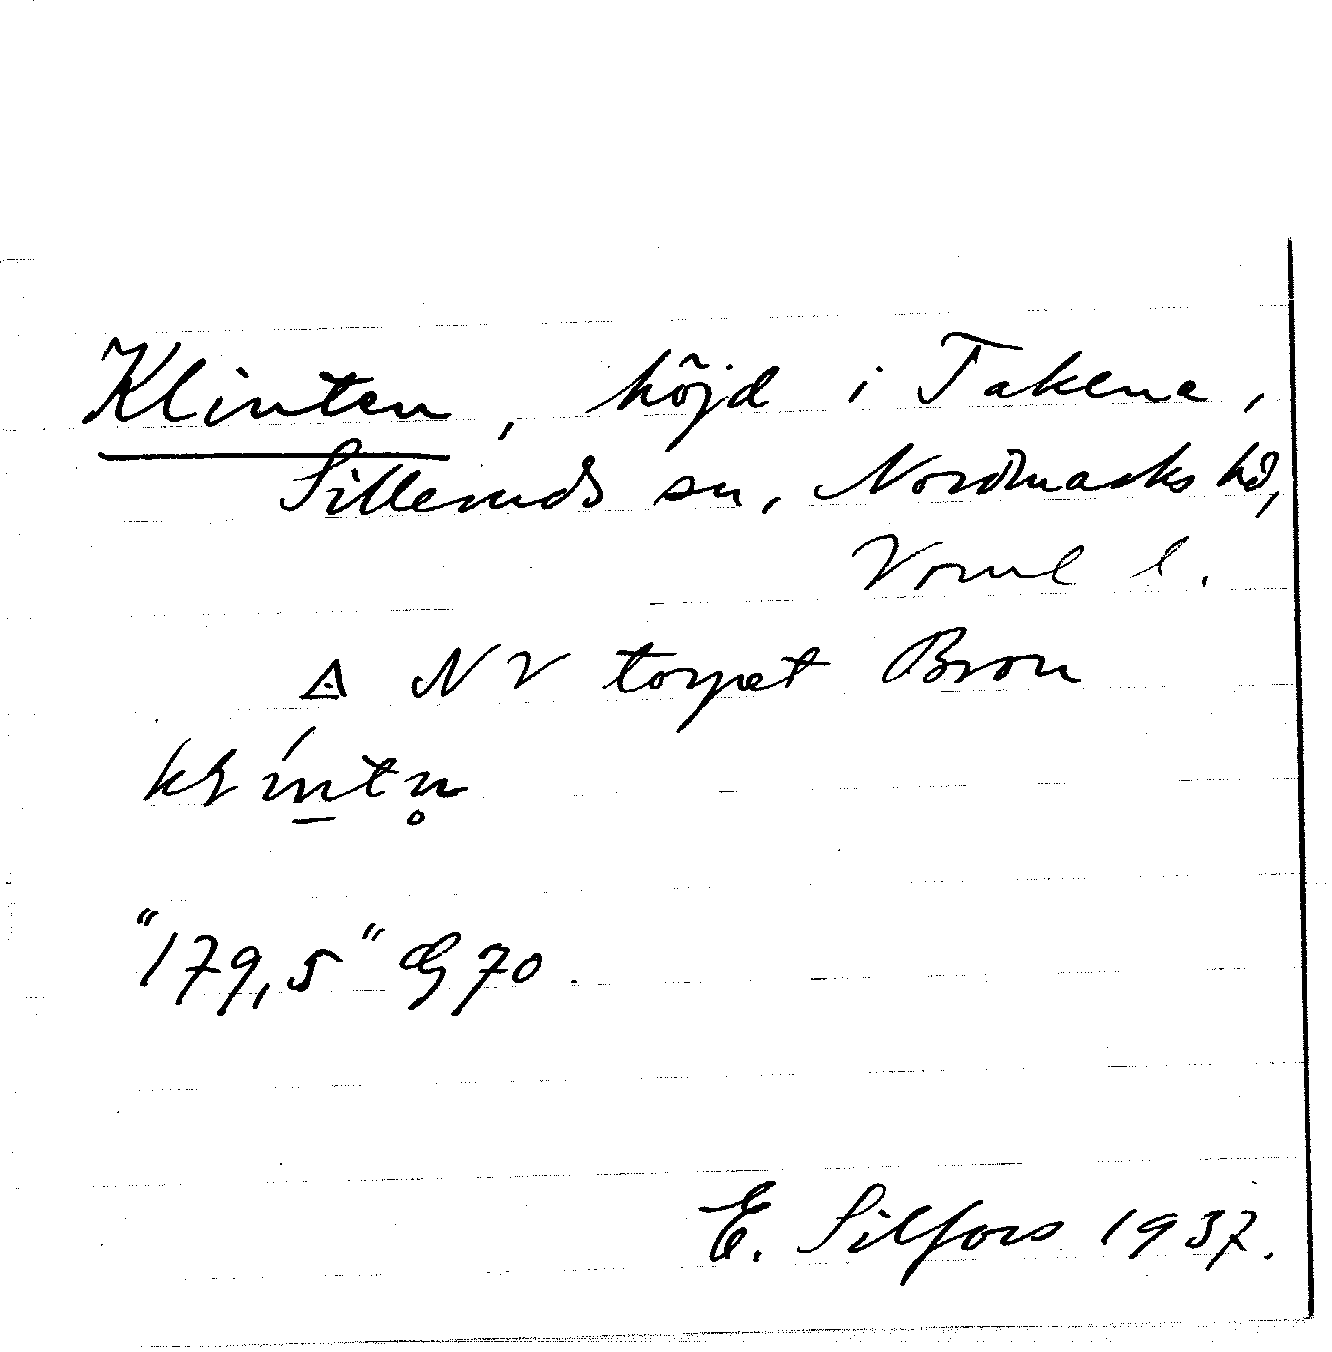 Klinten, höjd i Takene,
Sillerud sn, Nordmarks hd,
Värml l.
△ NV torpet Bron
"179,5" G 70.
E. Silfors 1937.